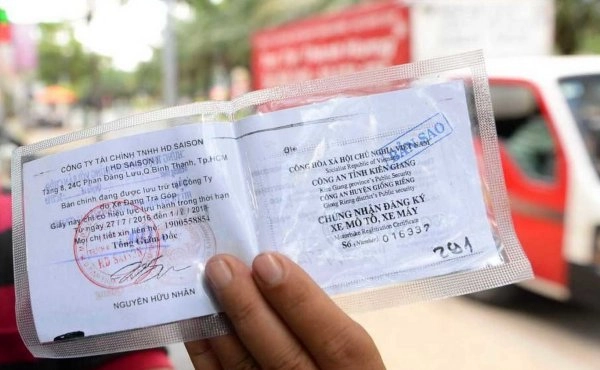 CÔNG TY TÀI CHÍNH TNHH HD SAISON
( HD SAISON )
Tầng 8, 24C Phan Đăng Lưu, Q.Bình Thạnh, Tp.HCM
Bản chính đang được lưu trữ tại Công Ty
do Xe Đang Trả Góp
Giấy này chỉ có hiệu lực lưu hành trong thời hạn
Từ ngày 27 / 7 / 2016 đến 1 / 2 / 2018
Mọi chi tiết xin liên hệ 1900558854
Tổng Giám Đốc
HD SAISON
NGUYỄN HỮU NHÂN
CỘNG HÒA XÃ HỘI CHỦ NGHĨA VIỆT NAM
Socialist Republic of Vietnam
BẢN SAO
CÔNG AN TỈNH KIÊN GIANG
Kien Giang province's Public Security
CÔNG AN HUYỆN GIỒNG RIỀNG
Giong Rieng district's Public Security
CHỨNG NHẬN ĐĂNG KÝ
XE MÔ TÔ, XE MÁY
Motorbike Registration Certificate
Số (Number) 016337
291